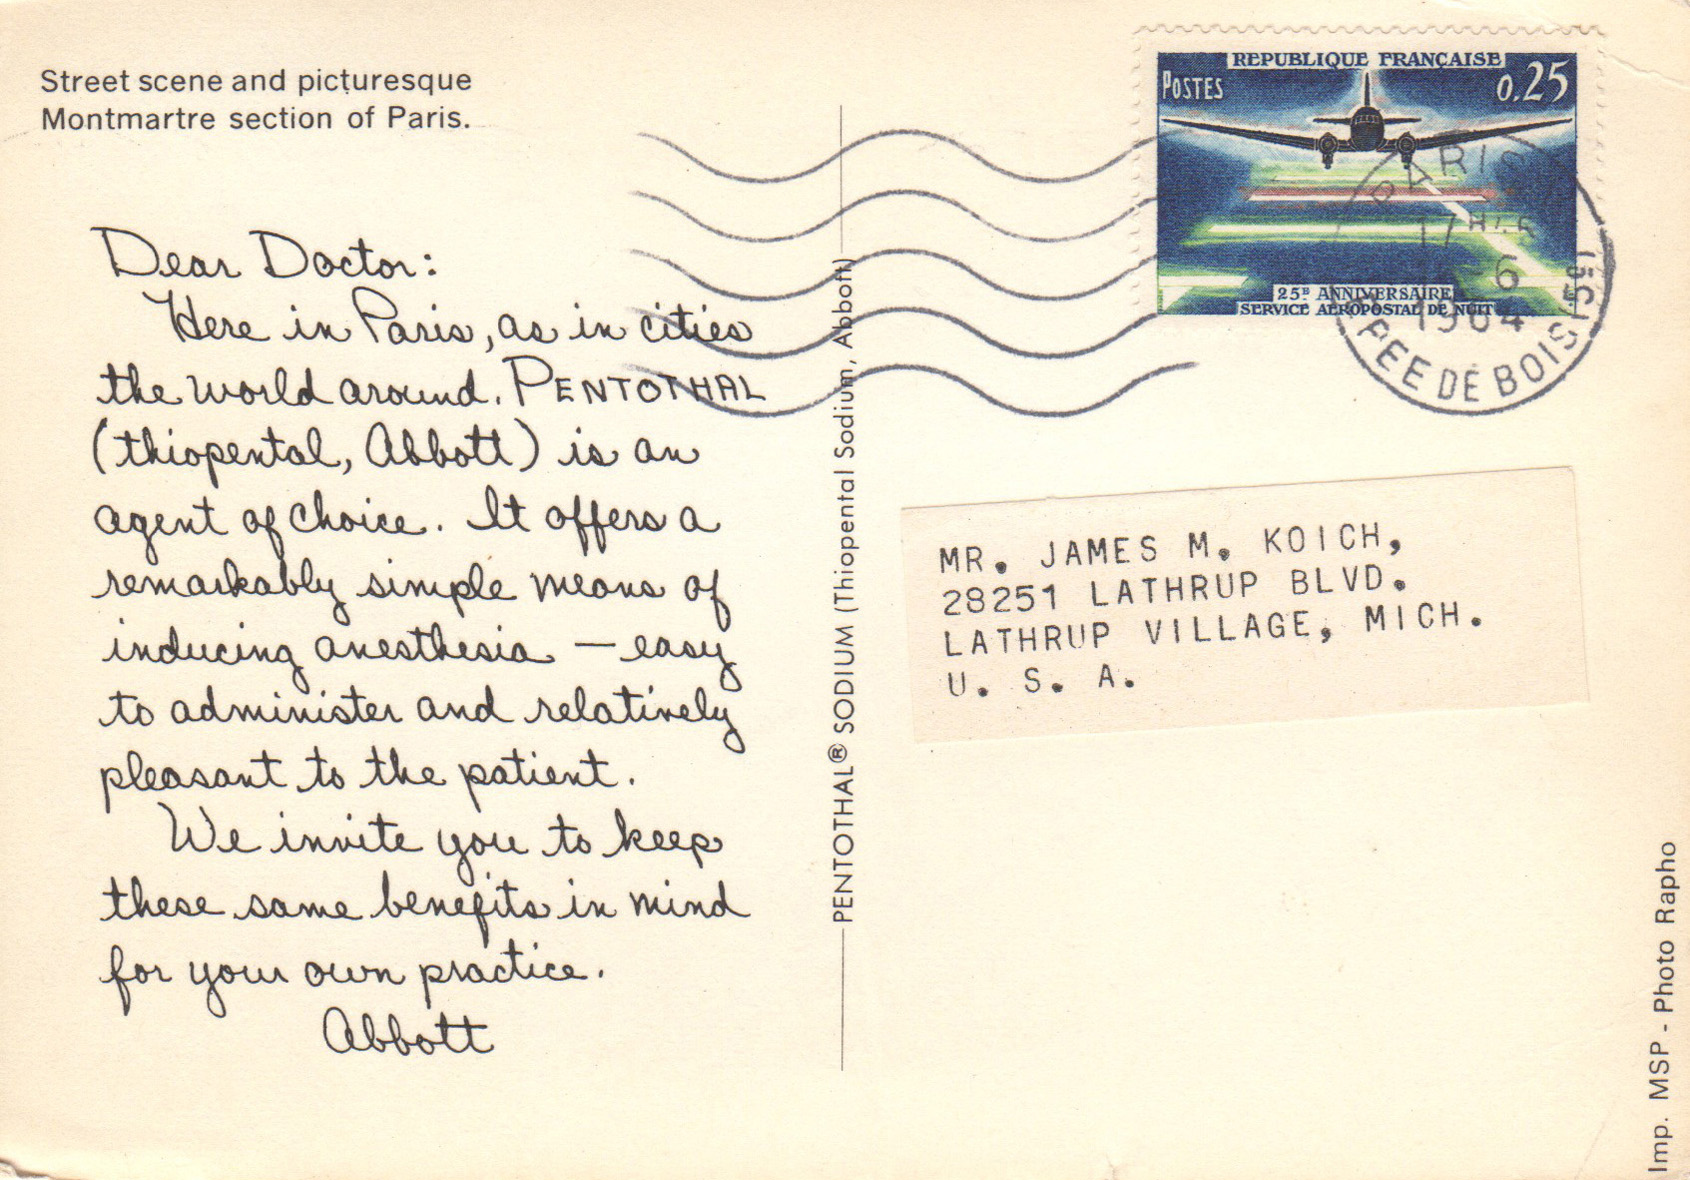 Street scene and picturesque
Montmartre section of Paris.
Dear Doctor:
Here in Paris, as in cities
the world around, PENTOTHAL
(thiopental, Abbott) is an
agent of choice. It offers a
remarkably simple means of
inducing anesthesia — easy
to administer and relatively
pleasant to the patient.
We invite you to keep
these same benefits in mind
for your own practice.
Abbott
PENTOTHAL® SODIUM (Thiopental Sodium, Abbott)
REPUBLIQUE FRANÇAISE
POSTES
0.25
25E ANNIVERSAIRE
SERVICE AEROPOSTAL DE NUIT
PARIS
17H
6
1964
R. EPEE DE BOIS
MR. JAMES M. KOICH,
28251 LATHRUP BLVD.
LATHRUP VILLAGE, MICH.
U. S. A.
Imp. MSP - Photo Rapho